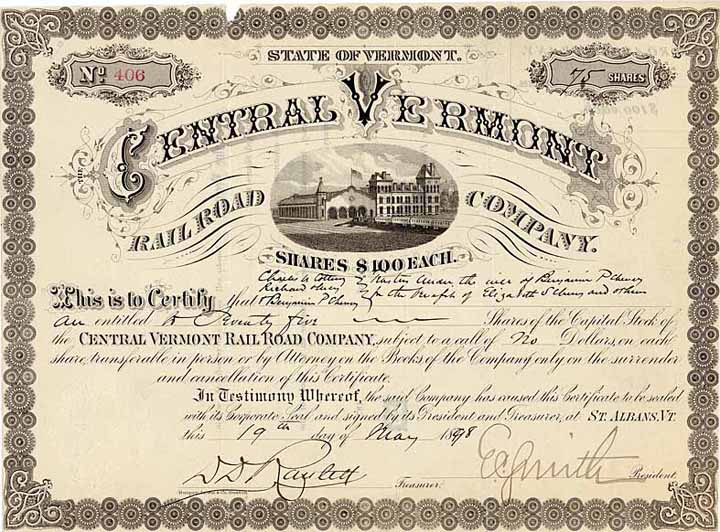 STATE OF VERMONT.
No. 406
75 SHARES
CENTRAL VERMONT
RAIL ROAD COMPANY.
SHARES $100 EACH.
Charles W Cotting Trustees under the will of Benjamin P Cheney
Richard Olney for the benefit of Elizabeth S Cheney and others
This is to Certify that & Benjamin P Cheney
are entitled to Seventy five Shares of the Capital Stock of
the CENTRAL VERMONT RAIL ROAD COMPANY, subject to a call of No Dollars, on each
share, transferable in person or by Attorney on the Books of the Company only on the surrender
and cancellation of this Certificate.
In Testimony Whereof, the said Company has caused this Certificate to be sealed
with its Corporate Seal and signed by its President and Treasurer, at ST. ALBANS, VT.
this 19th day of May 1898
Treasurer.
President.